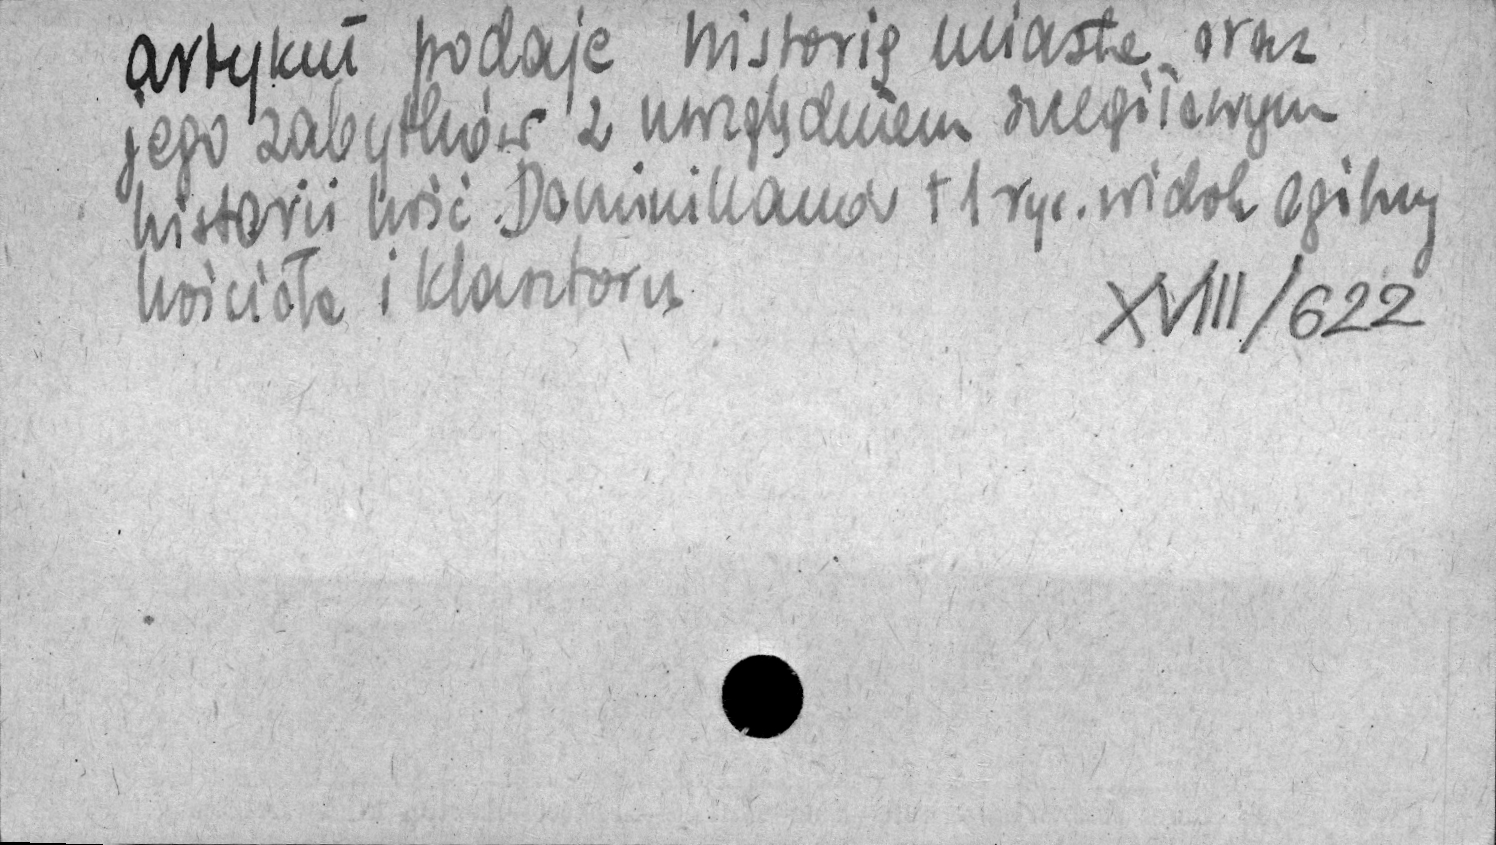 artykuł podaje historię miasta oraz
jego zabytków z uwzględnieniem szczegółowym
historii kość. Dominikanów + 1 ryc. widok ogólny
kościoła i klasztoru
XVIII/622